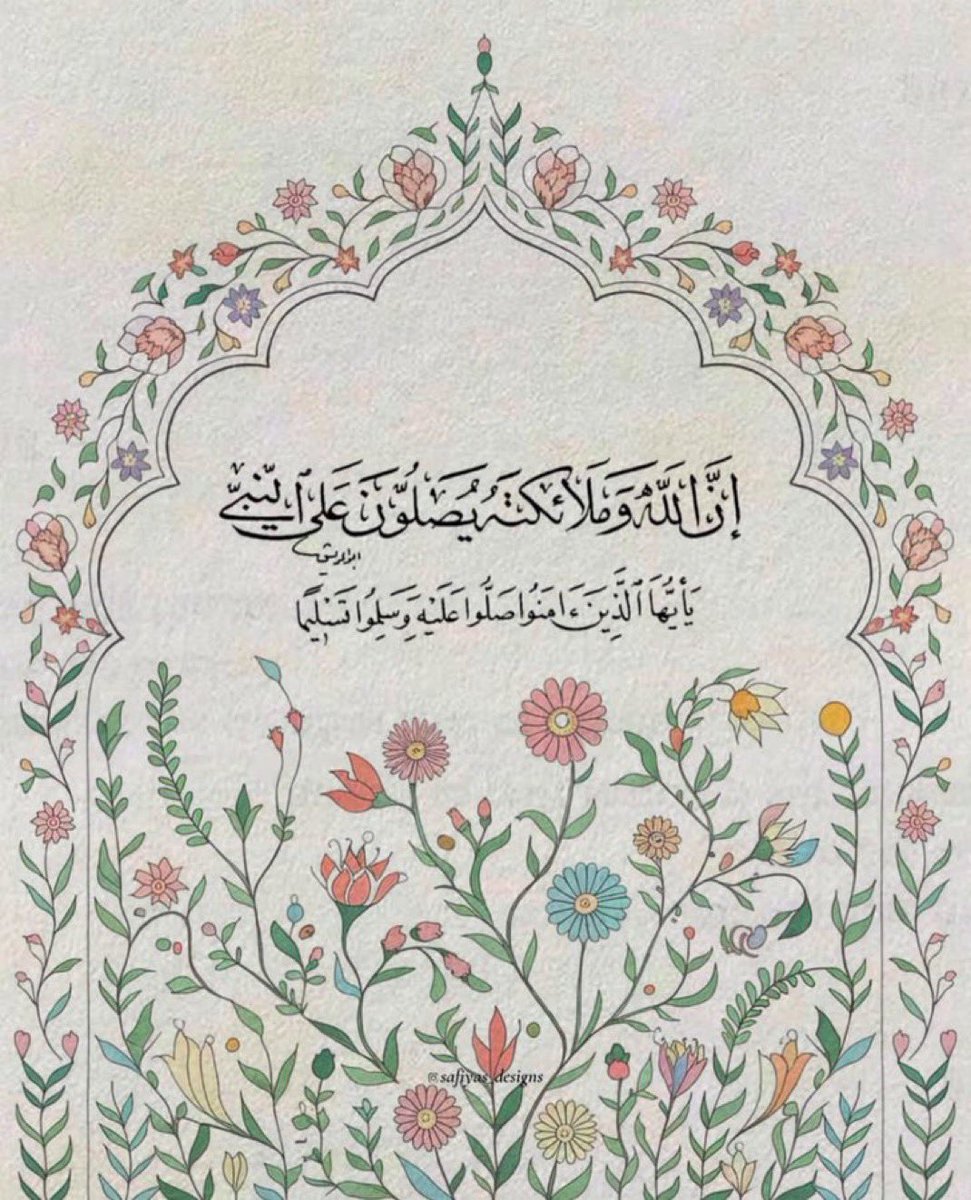 إِنَّ اللَّهَ وَمَلَائِكَتَهُ يُصَلُّونَ عَلَى ٱلنَّبِيِّ
يَٰأَيُّهَا ٱلَّذِينَ ءَامَنُوا صَلُّوا عَلَيْهِ وَسَلِّمُوا تَسْلِيمًا
@safiyas_designs